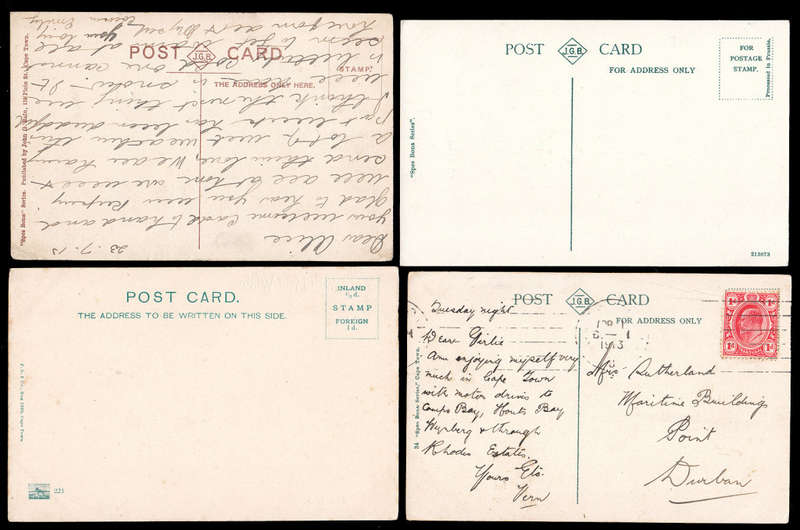 POST J.G.B. CARD
STAMP.
THE ADDRESS ONLY HERE.
"Spes Bona" Series. Published by John G. Bain, 152 Plein St., Cape Town.
23.7.13
Dear Alice
your welcome Card to hand and
glad to hear you were keeping
well all at home are well
and their love, We are having
a lot of wet weather this
past week has been
I thank the next thing we
will is smoke. It
is one cannot
seem to get at all
POST J.G.B. CARD
FOR ADDRESS ONLY
FOR
POSTAGE
STAMP.
Processed in Prussia.
"Spes Bona Series".
213673
POST CARD.
THE ADDRESS TO BE WRITTEN ON THIS SIDE.
INLAND
½d.
STAMP
FOREIGN
1d.
221
POST J.G.B. CARD
FOR ADDRESS ONLY
34 "Spes Bona Series," Cape Town.
Tuesday night
Dear Girlie
Am enjoying myself very
much in Cape Town
with motor drives to
Camps Bay, Houts Bay
Wynberg & through
Rhodes Estates.
Yours Etc.
Vern
1913
1d 1d
1d 1d
Mrs Sutherland
Maritime Buildings
Point
Durban